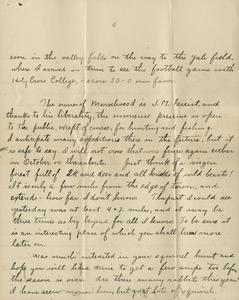 6
corn in the valley fields on the way to the Yale field,
where I arrived in time to see the football game with
Holy Cross College, - score 30-0 our favor.
The owner of Marvelwood is J.M. Greist and
thanks to his liberality, the immense preserve is open
to the public, except, of course, for hunting and fishing.
I anticipate many expeditions there in the future, but it
is safe to say I will not over that are again either
in October or thereabouts. Just think of a virgin
forest full of deer and all kinds of wild beasts!
It is only a few miles from the edge of town, and
extends - how far I don't know. The part I could see
yesterday was at least 4 x 2 miles, and it may be
three times as big beyond for all I know. To be sure it
is an interesting place of which you shall hear more
later on.
Was much interested in your squirrel hunt and
hope you will like some to get a few snips too before
the season is over. Are there many rabbits this year?
I have seen none here, but great lots of squirrels.